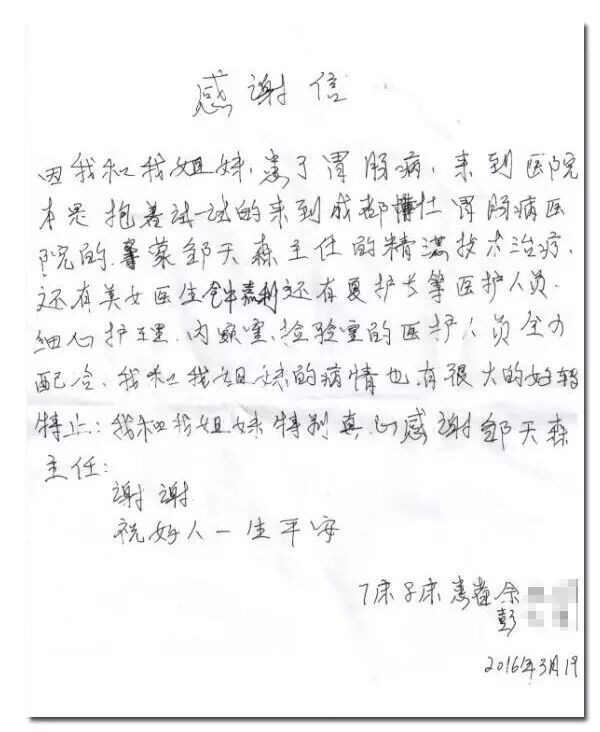 感谢信
因我和我姐妹.患了胃肠病,来到医院
本是抱着试一试的来到成都博仁胃肠病医
院的.蒙邹天森主任的精湛技术治疗.
还有美女医生 还有夏护长等医护人员.
细心护理.内窥室.检验室的医护人员全力
配合.我和我姐妹的病情也有很大的好转
特止:我和我姐妹特别真心感谢邹天森
主任:
谢谢
祝好人一生平安
7床8床患者余
彭
2016年3月19